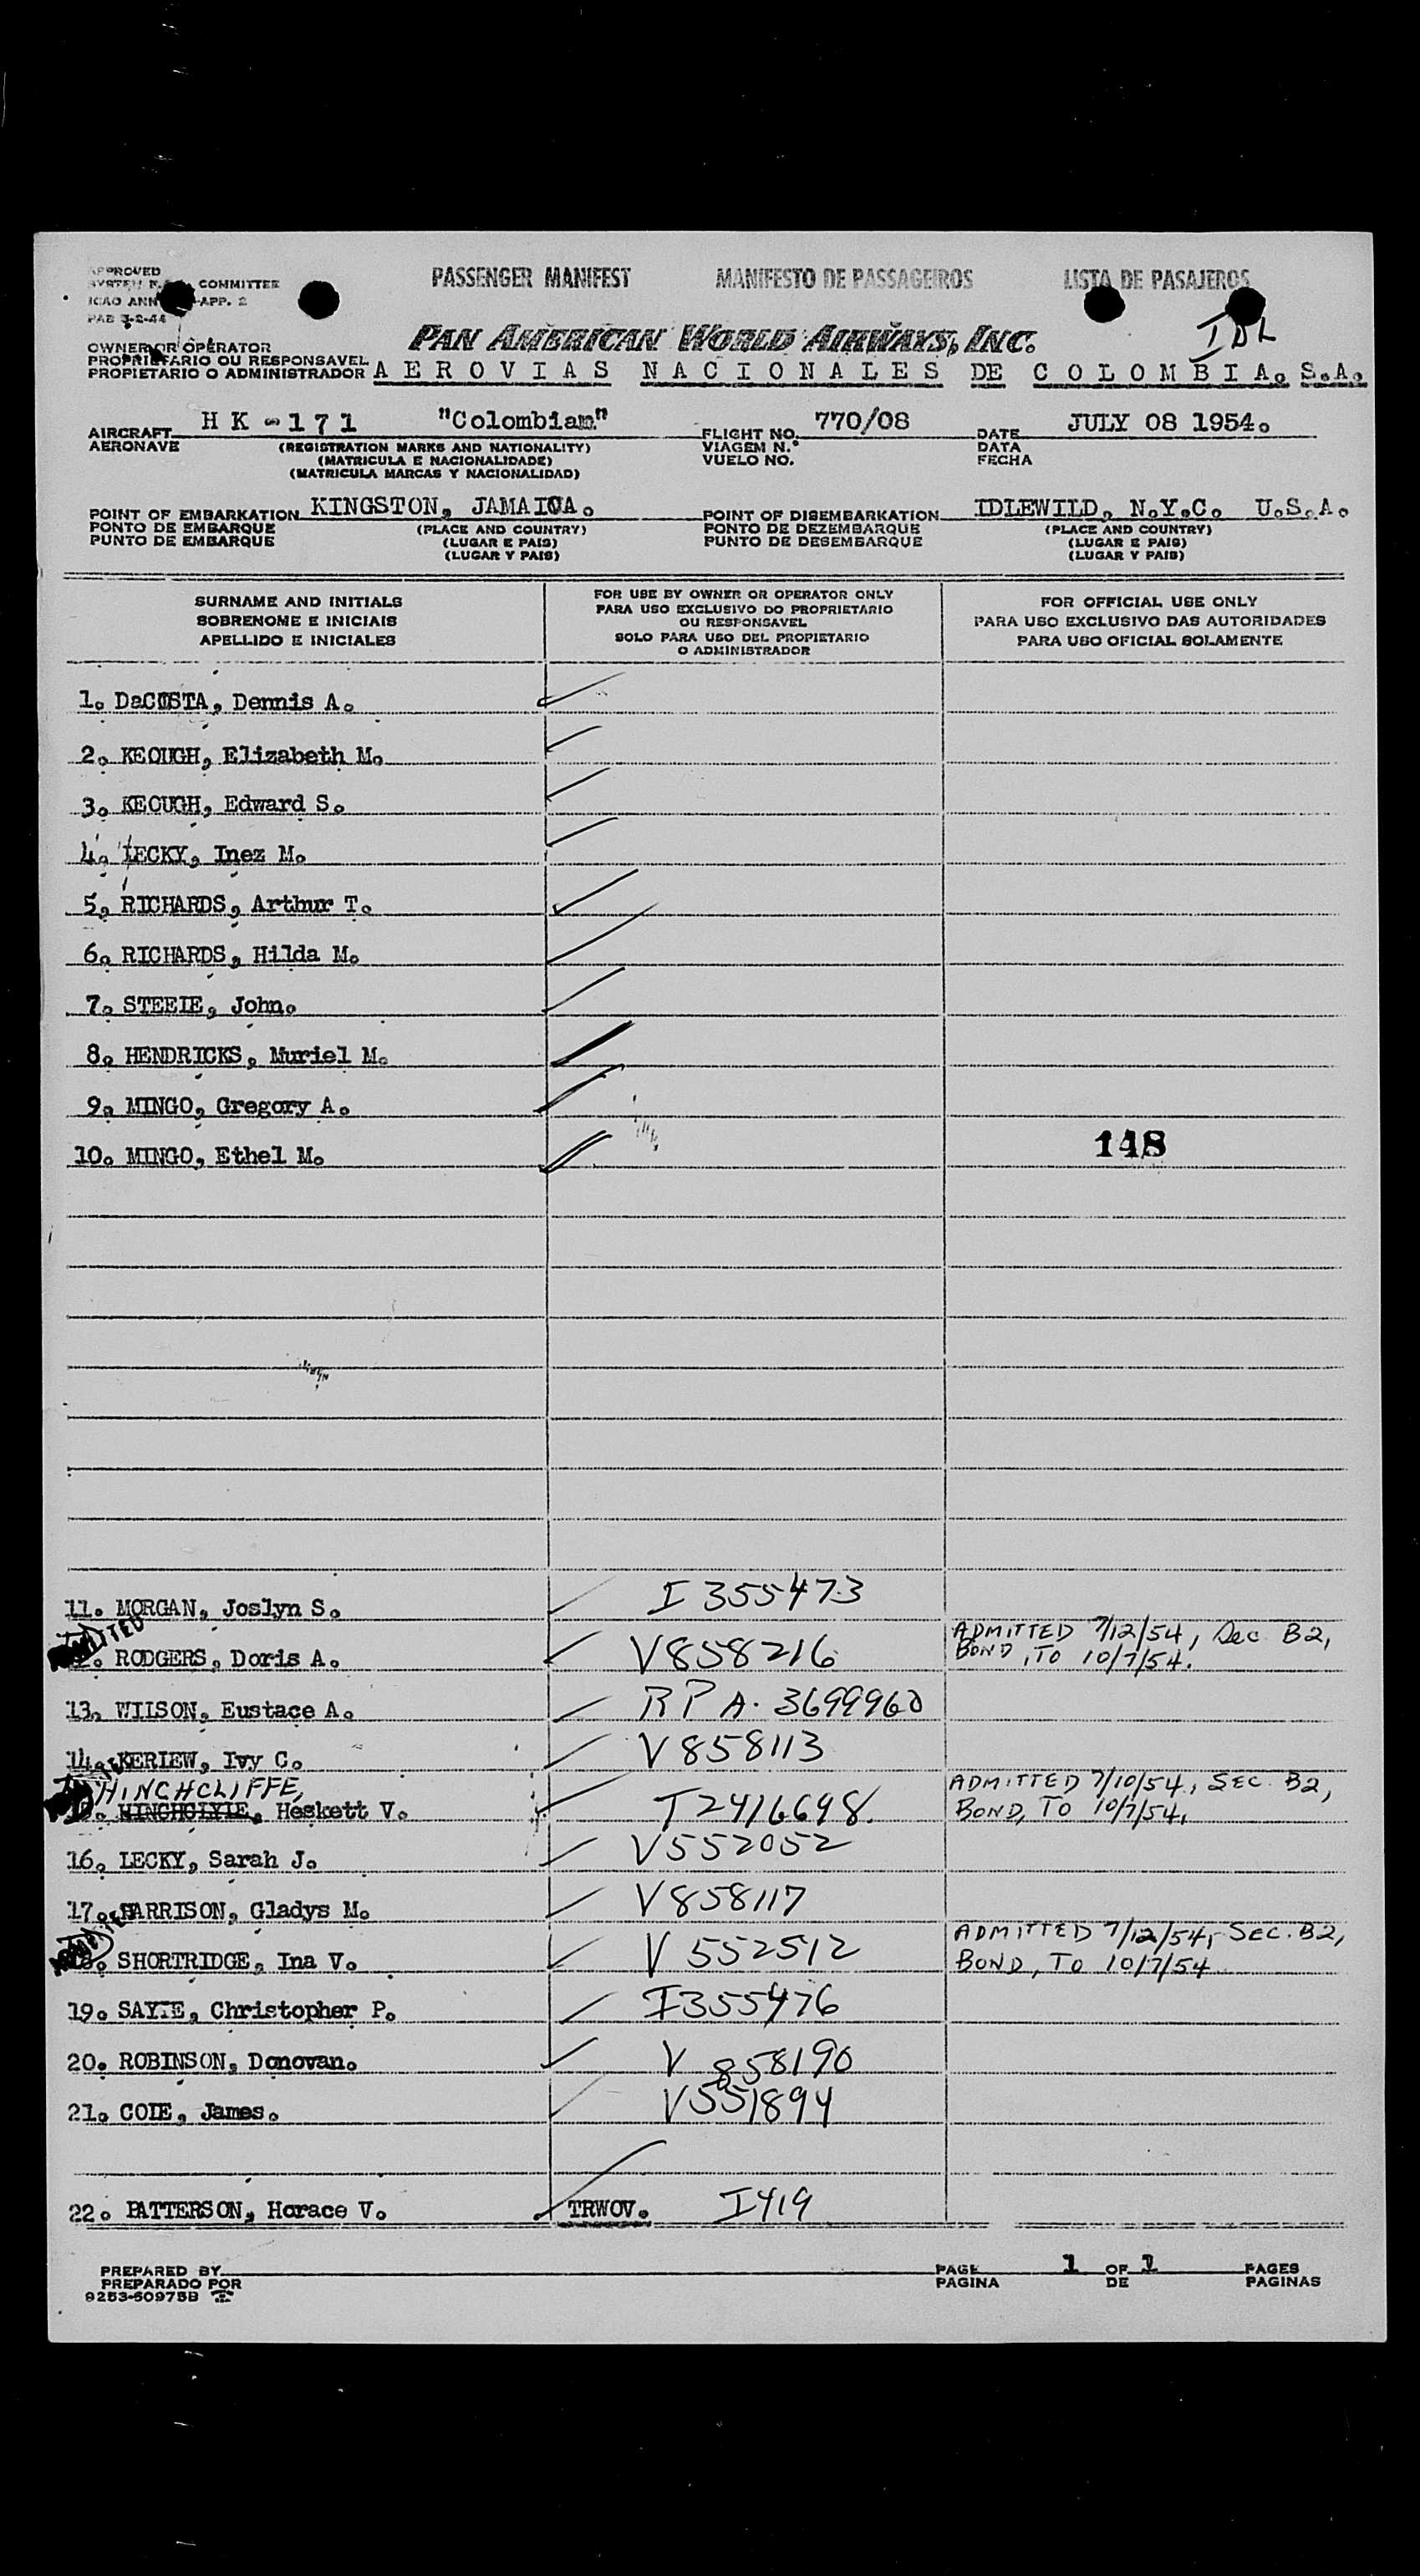 PASSENGER MANIFEST MANIFESTO DE PASSAGEIROS LISTA DE PASAJEROS
APPROVED
COMMITTEE
ICAO ANN APP. 2
PAB 3-2-44
IDL
PAN AMERICAN WORLD AIRWAYS, INC.
OWNER OR OPERATOR
PROPRIETARIO OU RESPONSAVEL
PROPIETARIO O ADMINISTRADOR AEROVIAS NACIONALES DE COLOMBIA. S.A.
AIRCRAFT HK-171 "Colombian" FLIGHT NO. 770/08 DATE JULY 08 1954.
AERONAVE (REGISTRATION MARKS AND NATIONALITY) VIAGEM N.º DATA
(MATRICULA E NACIONALIDADE) VUELO NO. FECHA
(MATRICULA MARCAS Y NACIONALIDAD)
POINT OF EMBARKATION KINGSTON, JAMAICA. POINT OF DISEMBARKATION IDLEWILD, N.Y.C. U.S.A.
PONTO DE EMBARQUE (PLACE AND COUNTRY) PONTO DE DEZEMBARQUE (PLACE AND COUNTRY)
PUNTO DE EMBARQUE (LUGAR E PAIS) PUNTO DE DESEMBARQUE (LUGAR E PAIS)
(LUGAR Y PAIS) (LUGAR Y PAIS)
SURNAME AND INITIALS
SOBRENOME E INICIAIS
APELLIDO E INICIALES
FOR USE BY OWNER OR OPERATOR ONLY
PARA USO EXCLUSIVO DO PROPRIETARIO
OU RESPONSAVEL
SOLO PARA USO DEL PROPIETARIO
O ADMINISTRADOR
FOR OFFICIAL USE ONLY
PARA USO EXCLUSIVO DAS AUTORIDADES
PARA USO OFICIAL SOLAMENTE
1. DaCOSTA, Dennis A.
2. KEOUGH, Elizabeth M.
3. KEOUGH, Edward S.
4. LECKY, Inez M.
5. RICHARDS, Arthur T.
6. RICHARDS, Hilda M.
7. STEELE, John.
8. HENDRICKS, Muriel M.
9. MINGO, Gregory A.
10. MINGO, Ethel M. 148
11. MORGAN, Joslyn S. I 355473
ADMITTED
RODGERS, Doris A. V858216 ADMITTED 7/12/54, Sec B2,
BOND, TO 10/7/54.
13. WILSON, Eustace A. RP A. 3699960
14. KERLEW, Ivy C. V858113
HINCHCLIFFE,
HINCHCLYIE, Heskett V. T2416698. ADMITTED 7/10/54, SEC. B2,
BOND, TO 10/7/54,
16. LECKY, Sarah J. V552052
17. HARRISON, Gladys M. V858117
18. SHORTRIDGE, Ina V. V 552512 ADMITTED 7/12/54, SEC. B2,
BOND, TO 10/7/54
19. SAYLE, Christopher P. I355476
20. ROBINSON, Donovan. V 858190
21. COLE, James. V551894
22. PATTERSON, Horace V. TRWOV. I419
PREPARED BY PAGE 1 OF 1 PAGES
PREPARADO POR PAGINA DE PAGINAS
9253-60975B